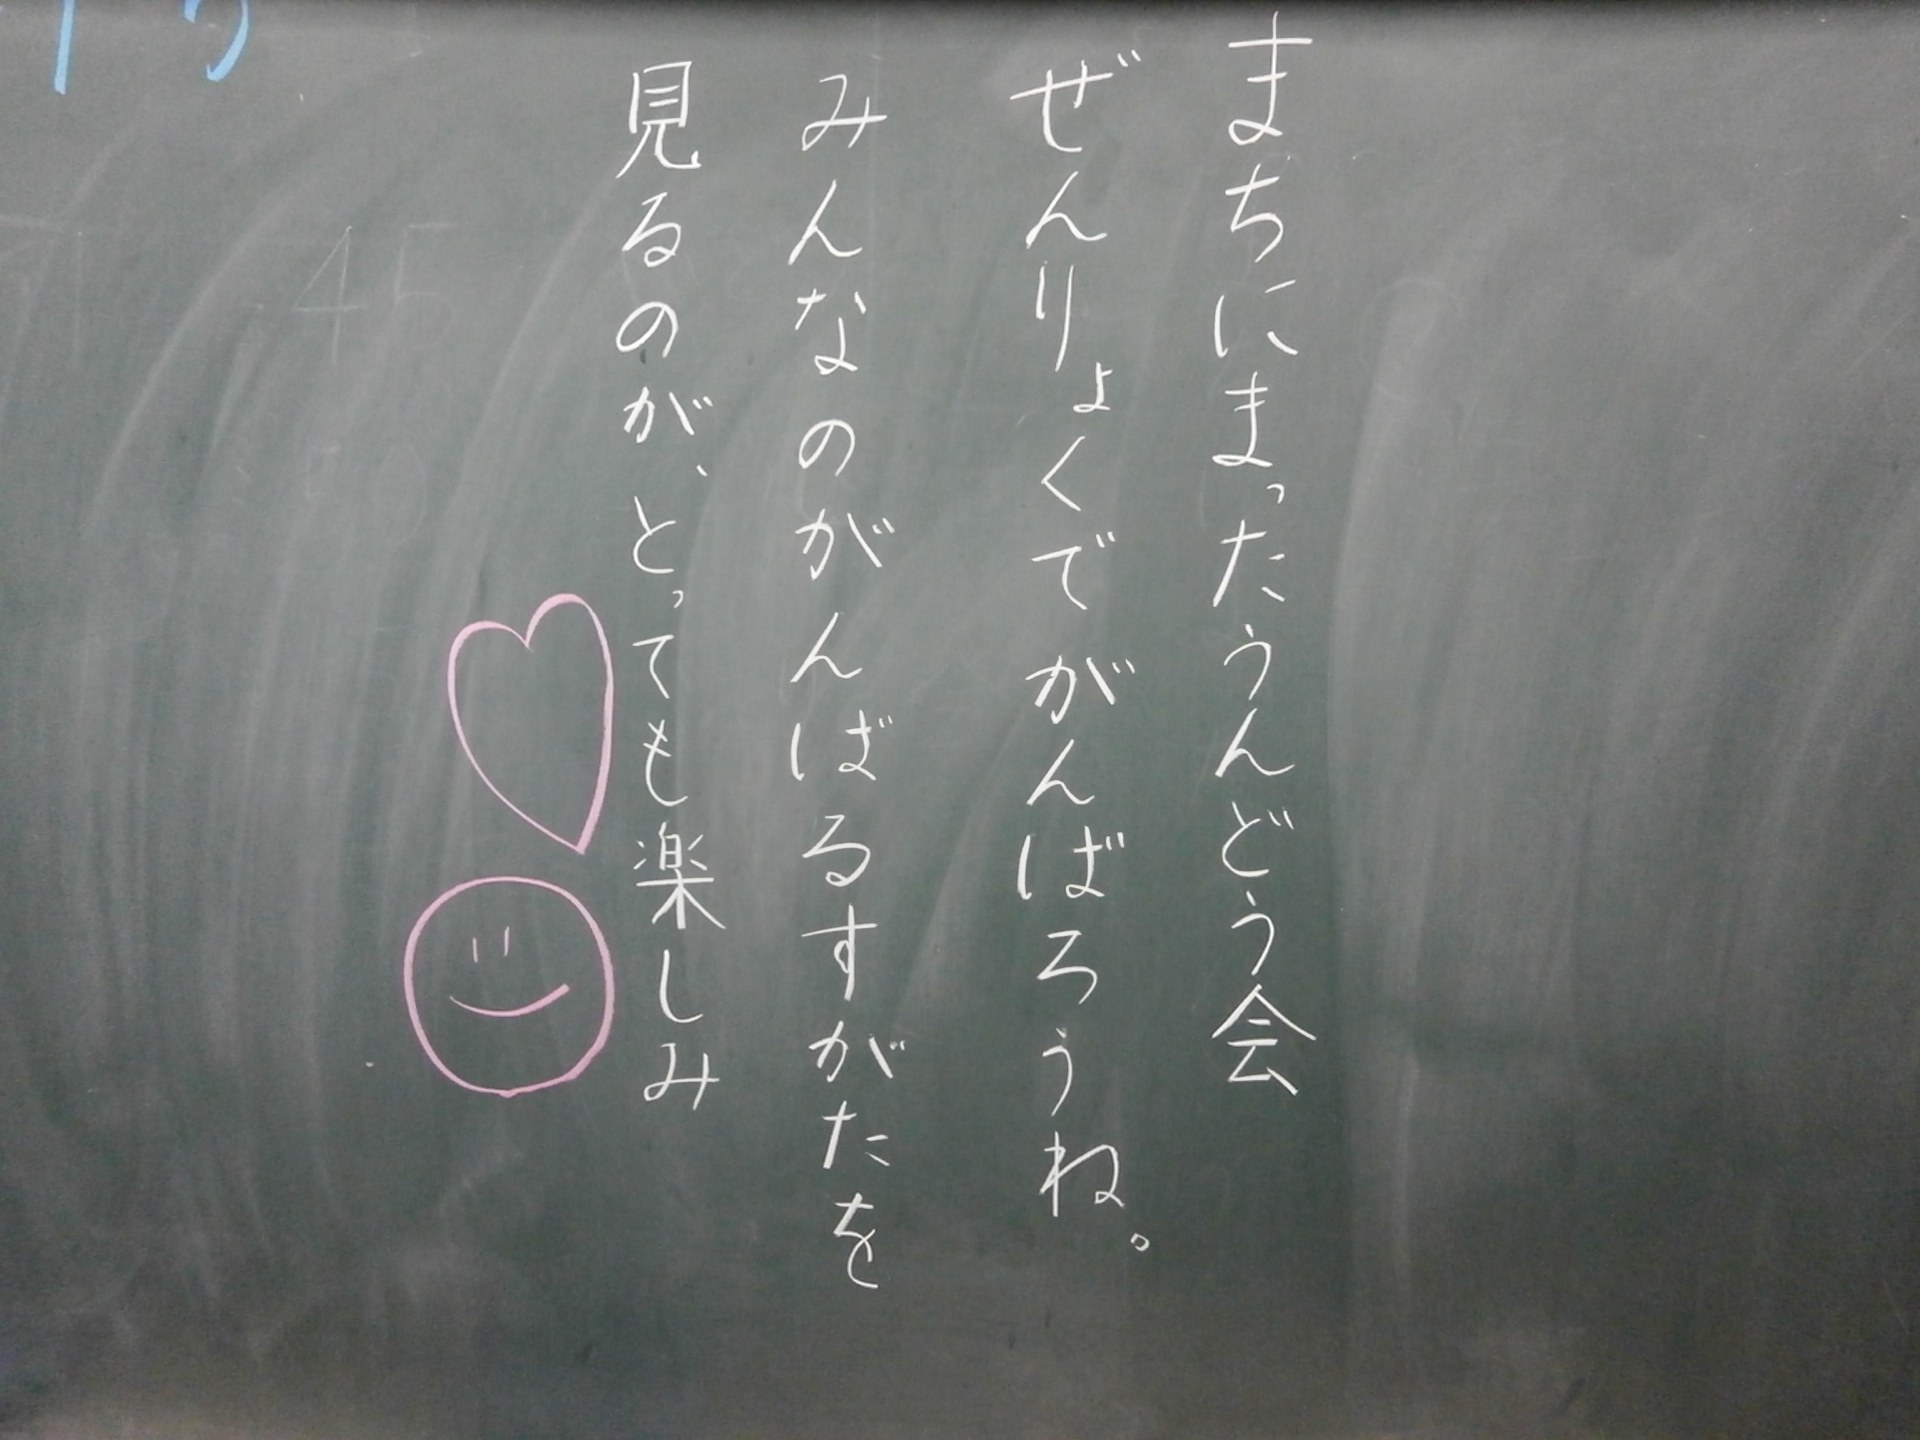 まちにまったうんどう会
ぜんりょくでがんばろうね。
みんなのがんばるすがたを
見るのが、とっても楽しみ